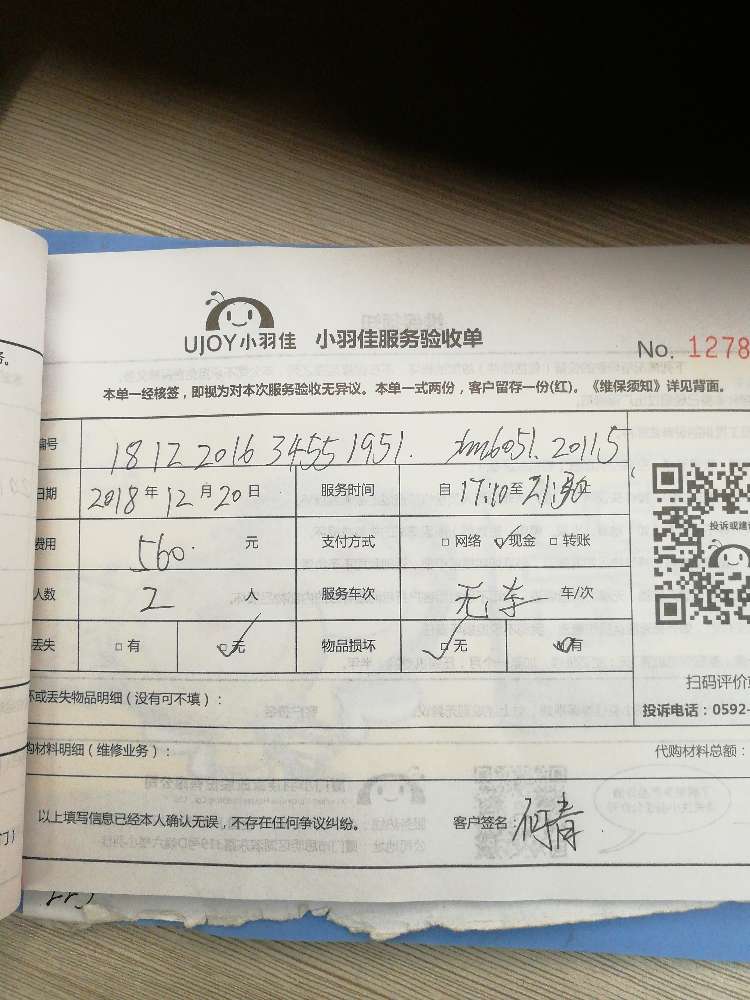 UJOY小羽佳 小羽佳服务验收单
No. 1278
本单一经核签，即视为对本次服务验收无异议。本单一式两份，客户留存一份(红)。《维保须知》详见背面。
编号 18122016 34551951. xm6051.20115
日期 2018年12月20日 服务时间 自17:10至21:30止
费用 560. 元 支付方式 □网络 ☑现金 □转账
人数 2 人 服务车次 无车 车/次
丢失 □有 ☑无 物品损坏 ☑无 有
投诉或建议
坏或丢失物品明细（没有可不填）：
扫码评价
投诉电话：0592-
购材料明细（维修业务）：
代购材料总额：
以上填写信息已经本人确认无误，不存在任何争议纠纷。 客户签名：何青